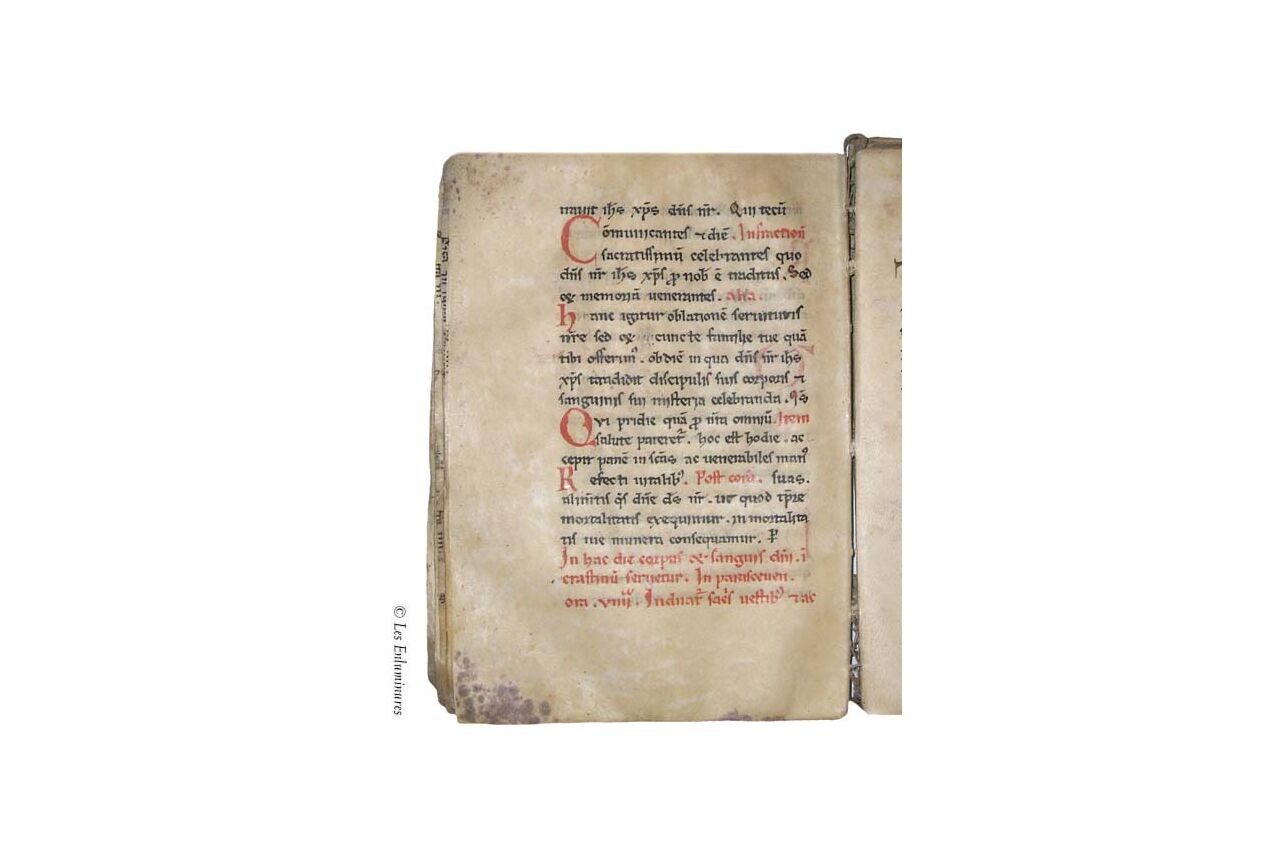 trauit ih̅s xp̅s dn̅s nr̅. Qui tecū
Cōmunicantes ⁊ diē. Infractionē
sacratissimū celebrantes quo
dn̅s nr̅ ih̅s xp̅s ꝓ nob̅ ē traditus. Sed
& memoriā uenerantes.
hanc igitur oblationē seruitutis
nr̅e sed & cuncte familie tue quā
tibi offerim᾽. ob diē in qua dn̅s nr̅ ih̅s
xp̅s tradidit discipulis suis corporis ⁊
sanguinis sui misteria celebranda. qs̅
Qvi pridie quā ꝓ nr̅a omniū. Item
salute pateret᷑. hoc est hodie. ac
cepit panē in scās ac uenerabiles man᾽
Refecti uitalib᾽. Post com̅. suas.
alim̅tis qs̅ dn̅e ds̅ nr̅. ut quod tp̅re
mortalitatis exequimur. in mortalita
tis tue munera consequamur. P̅
In hac die corpus & sanguis dn̅i. ī
crastinū seruetur. In parasceuen.
ora .viiii. Induat᷑ sac̅s uestib᾽ ⁊ ac
© Les Enluminures